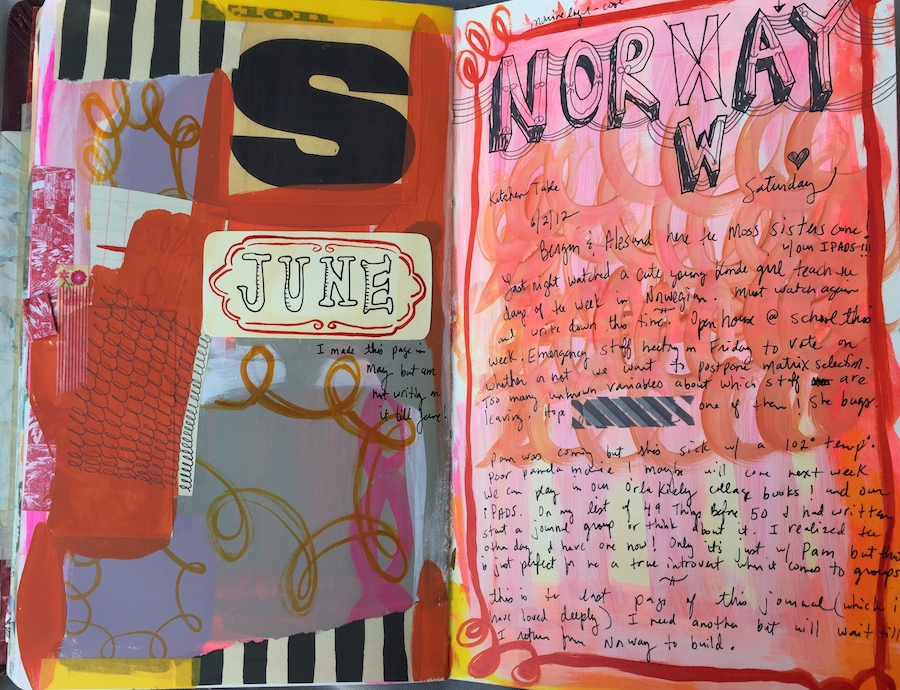 tion
S
JUNE
I made this page in
May but am
not writing on
it till June!
NORWAY
W
Kitchen Table
Saturday
6/2/12
Bergen & Alesund here the Moss sisters come!
w/our IPADS!!!
Last night watched a cute young blonde girl teach the
days of the week in Norwegian. Must watch again
and write down this time. Open house @ school this
week. Emergency staff meeting on Friday to vote on
whether or not we want to postpone matrix selection.
Too many unknown variables about which staff are
leaving! Hope one of them! She bugs.
Pam was coming but she's sick w/ a 102° temp.
Poor pamela maybe will come next week
We can play in our Orla Kiely collage books! and our
iPADS. On my list of 49 Things Before 50 I had written
start a journal group or think about it. I realized the
other day I have one now! Only it's just w/ Pam but this
is just perfect for me a true introvert when it comes to groups
this is the last page of this journal (which i
have loved deeply) I need another but will wait till
I return from Norway to build.